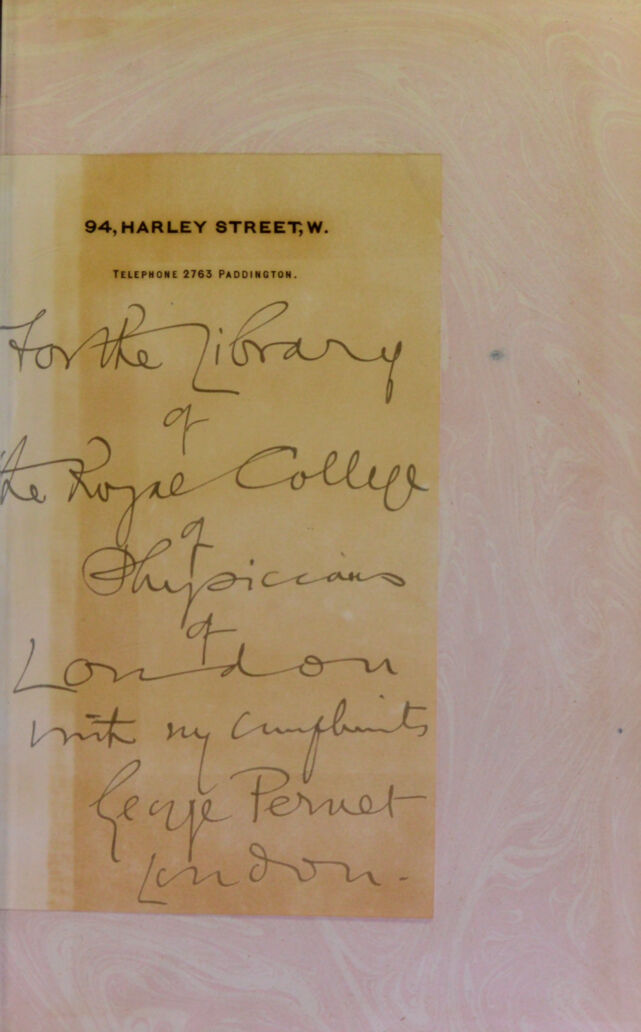 94, HARLEY STREET, W.
TELEPHONE 2763 PADDINGTON.
For the Library
of
the Royal College
of
Physicians
of
London
with my compliments
George Pernet
London.